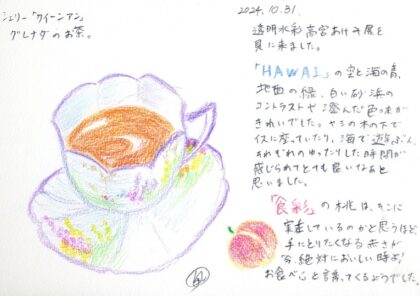 シェリー「クイーンアン」
グレナダのお茶。
2024.10.31.
透明水彩 高宮あけみ展を
見に来ました。
「HAWAII」の空と海の青、
地面の緑、白い砂浜の
コントラストや澄んだ色味が
きれいでした。ヤシの木の下で
イスに座っていたり、海で遊ぶ人、
それぞれのゆったりした時間が
感じられてとても良いなぁと
思いました。
「食彩」の桃は、そこに
実在しているのかと思うほど、
手にとりたくなる赤さが
“今、絶対においしい時よ!
お食べ”と言ってくるようでした。